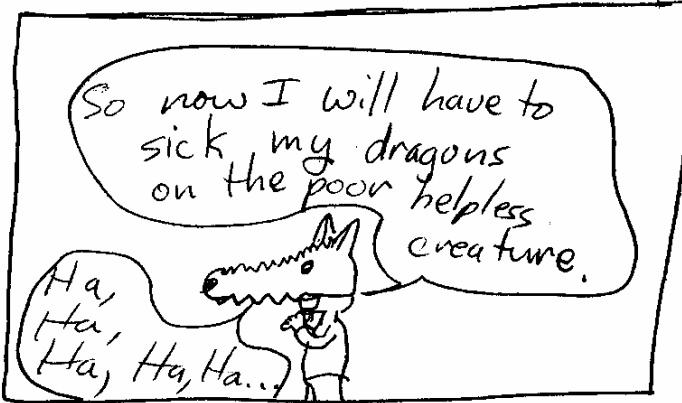 So now I will have to
sick my dragons
on the poor helpless
creature.
Ha,
Ha,
Ha, Ha, Ha...